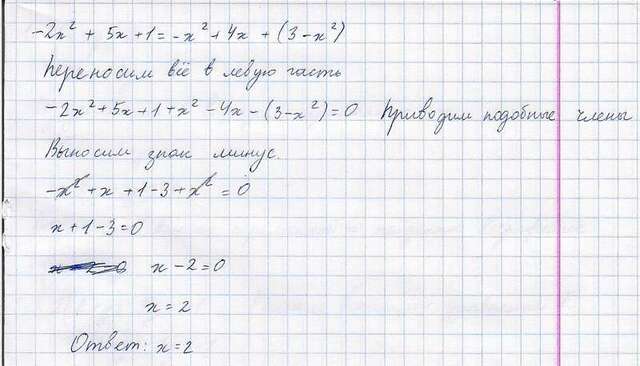 -2x² + 5x + 1 = -x² + 4x + (3 - x²)
Переносим всё в левую часть
-2x² + 5x + 1 + x² - 4x - (3 - x²) = 0 Приводим подобные члены
Выносим знак минус.
-x² + x + 1 - 3 + x² = 0
x + 1 - 3 = 0
x - 2 = 0
x = 2
Ответ: x = 2